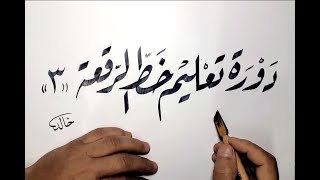 دَوْرَة تعْليْم خَطّ الرّقعة «٣»
خالد